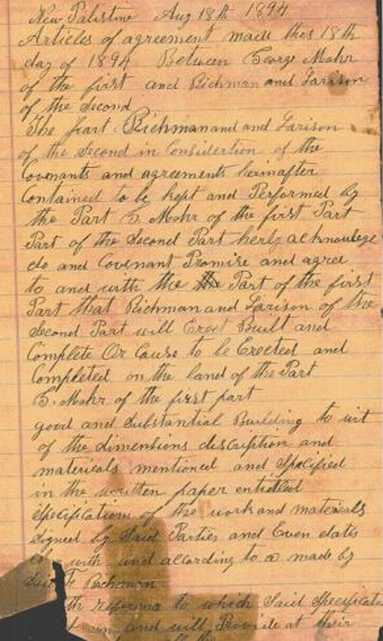 New Palestine Aug 18th 1894
Articles of agreement made this 18th
day of 1894 Between George Mohr
of the first and Richman and Larison
of the Second
The Part Richman and and Larison
of the Second in Consideration of the
Covenants and agreements herinafter
Contained to be kept and Performed by
the Part G. Mohr of the first Part
Part of the Second Part herby acknowlege
do and Covenant Promise and agree
to and with the Part of the first
Part that Richman and Larison of the
Second Part will Erect Built and
Complete Or Cause to be Erected and
Completed on the land of the Part
G. Mohr of the first part
good and Substantial Building to wit
of the dimensions discription and
matericals mentioned and Specified
in the written paper entitled
Specifications of the work and materials
Signed by Said Parties and Even dates
with and according to a made by
Richman
refernce to which Said Specificat
and will Provide at their